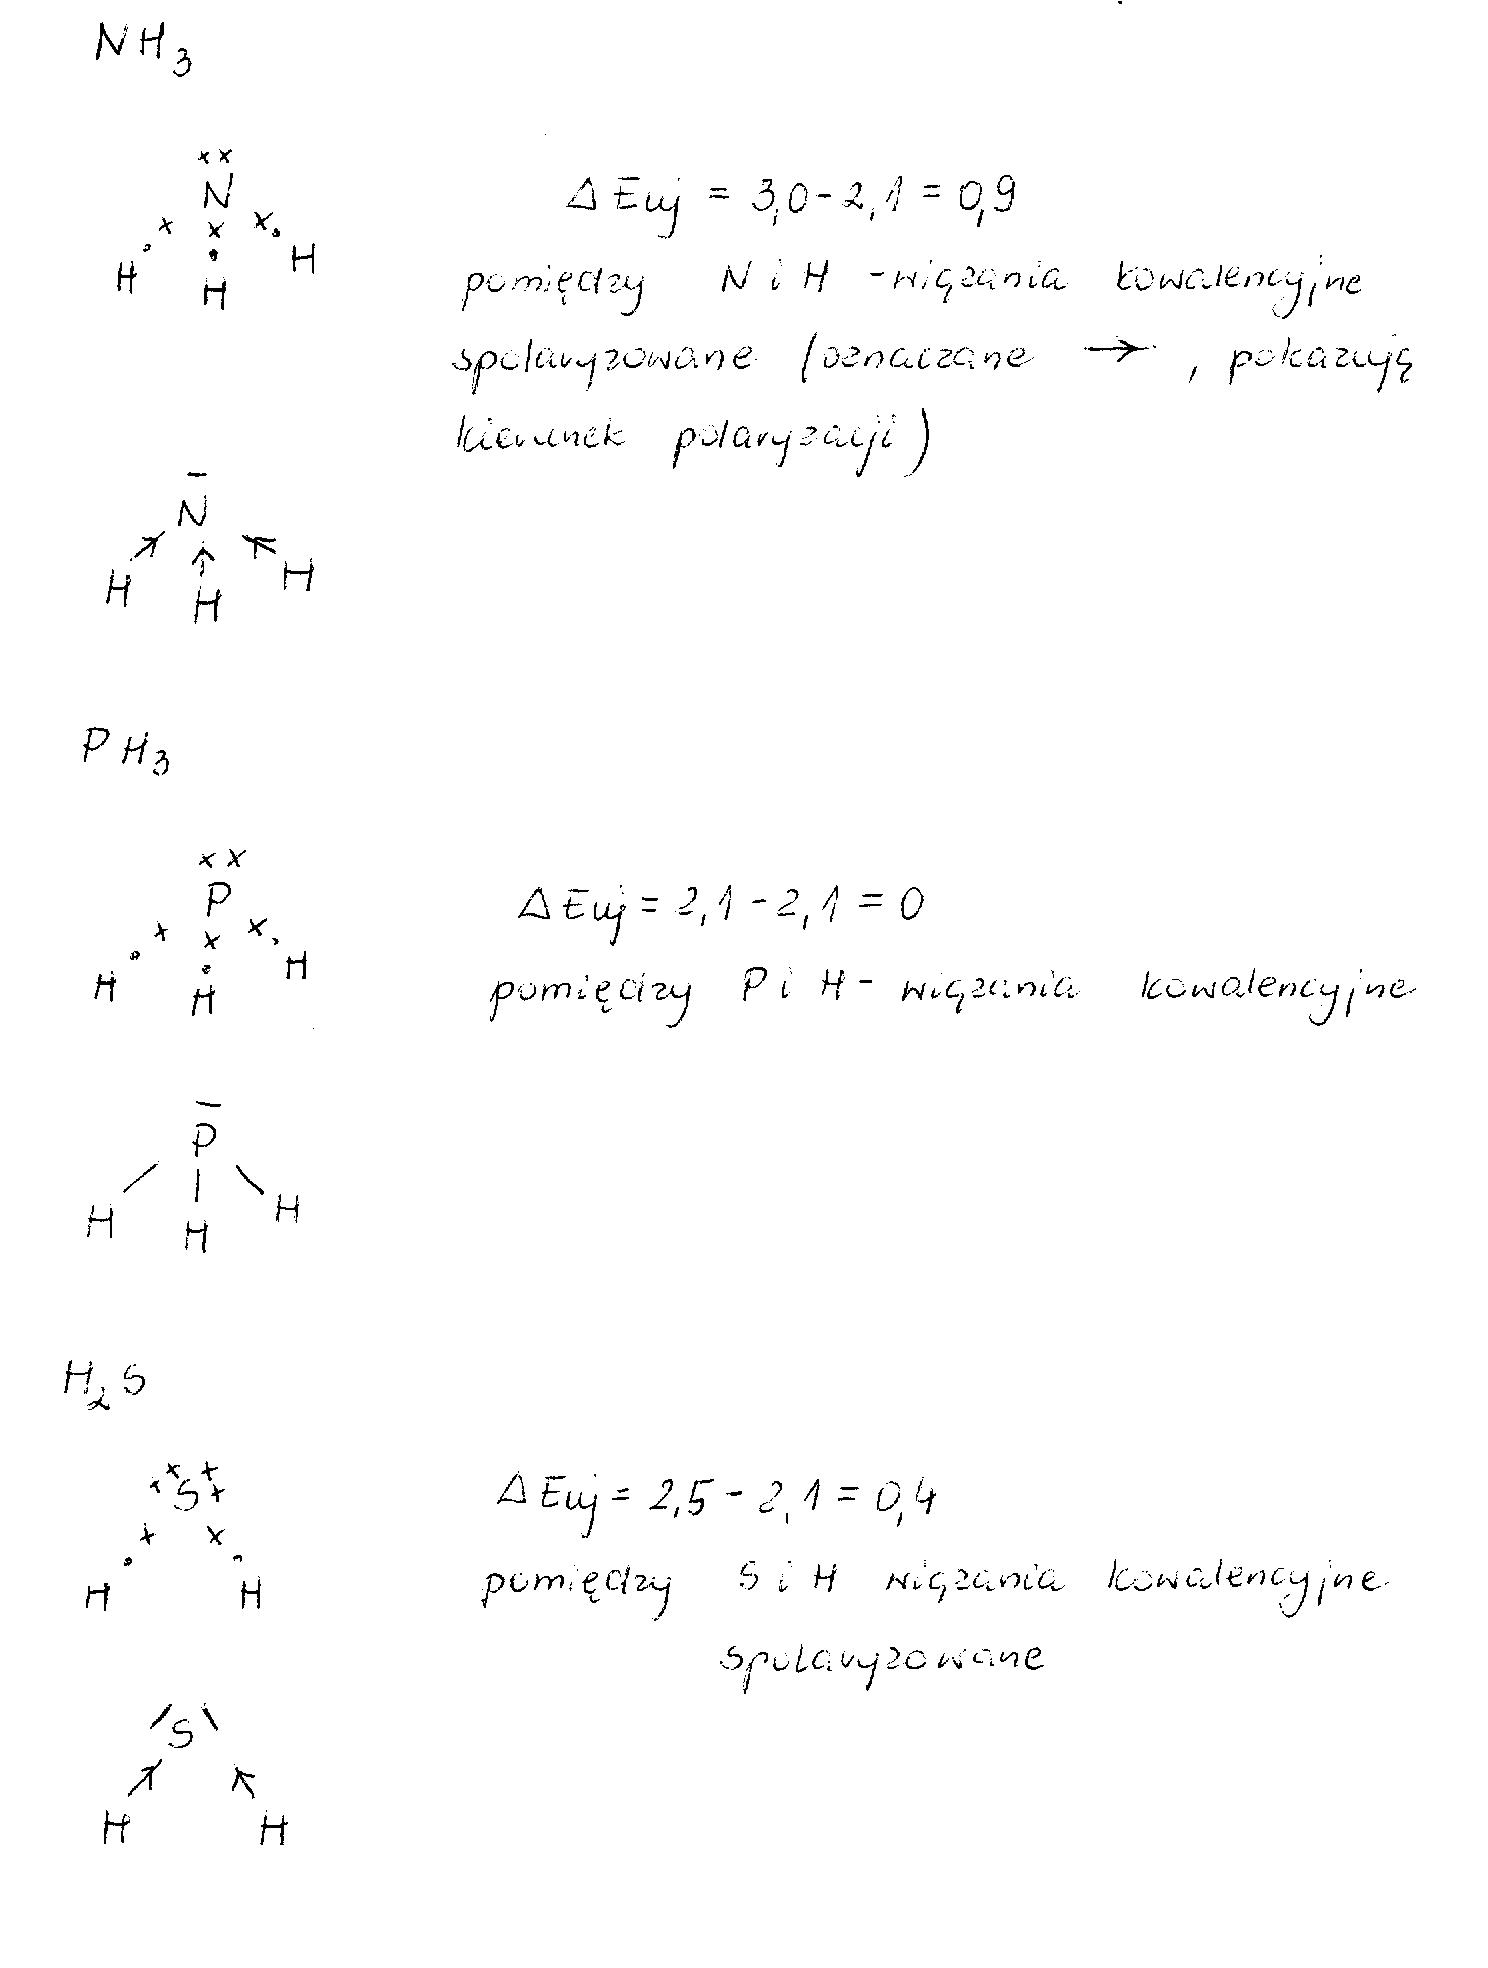 NH3
xx
N
ΔEuj = 3,0-2,1 = 0,9
x x x
H H H
pomiędzy N i H - wiązania kowalencyjne
spolaryzowane (oznaczane →, pokazują
kierunek polaryzacji)
N
H H H
PH3
xx
P
ΔEuj = 2,1-2,1 = 0
x x x
H H H
pomiędzy P i H - wiązania kowalencyjne
P
H H H
H2S
S
ΔEuj = 2,5-2,1 = 0,4
x x
H H
pomiędzy S i H wiązania kowalencyjne
spolaryzowane
S
H H